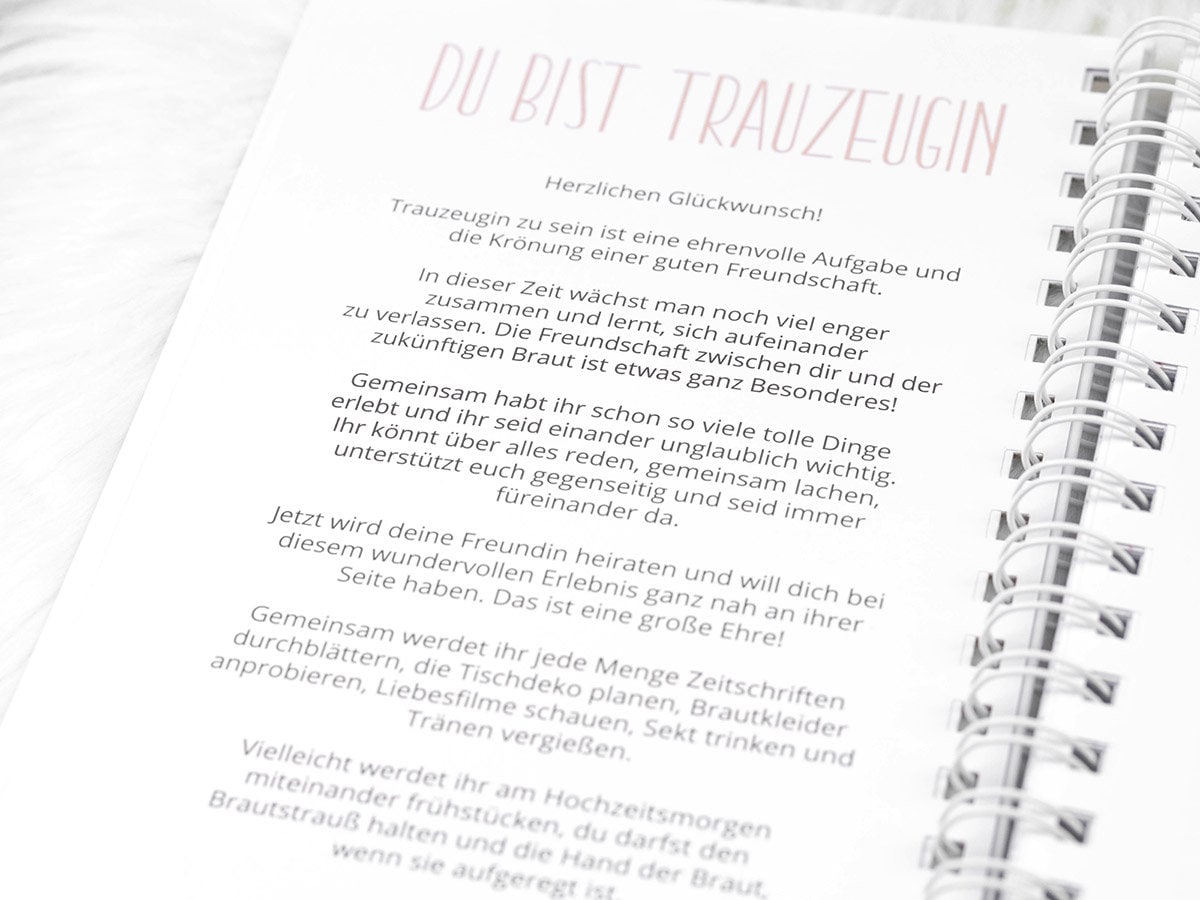 DU BIST TRAUZEUGIN
Herzlichen Glückwunsch!
Trauzeugin zu sein ist eine ehrenvolle Aufgabe und
die Krönung einer guten Freundschaft.
In dieser Zeit wächst man noch viel enger
zusammen und lernt, sich aufeinander
zu verlassen. Die Freundschaft zwischen dir und der
zukünftigen Braut ist etwas ganz Besonderes!
Gemeinsam habt ihr schon so viele tolle Dinge
erlebt und ihr seid einander unglaublich wichtig.
Ihr könnt über alles reden, gemeinsam lachen,
unterstützt euch gegenseitig und seid immer
füreinander da.
Jetzt wird deine Freundin heiraten und will dich bei
diesem wundervollen Erlebnis ganz nah an ihrer
Seite haben. Das ist eine große Ehre!
Gemeinsam werdet ihr jede Menge Zeitschriften
durchblättern, die Tischdeko planen, Brautkleider
anprobieren, Liebesfilme schauen, Sekt trinken und
Tränen vergießen.
Vielleicht werdet ihr am Hochzeitsmorgen
miteinander frühstücken, du darfst den
Brautstrauß halten und die Hand der Braut,
wenn sie aufgeregt ist.